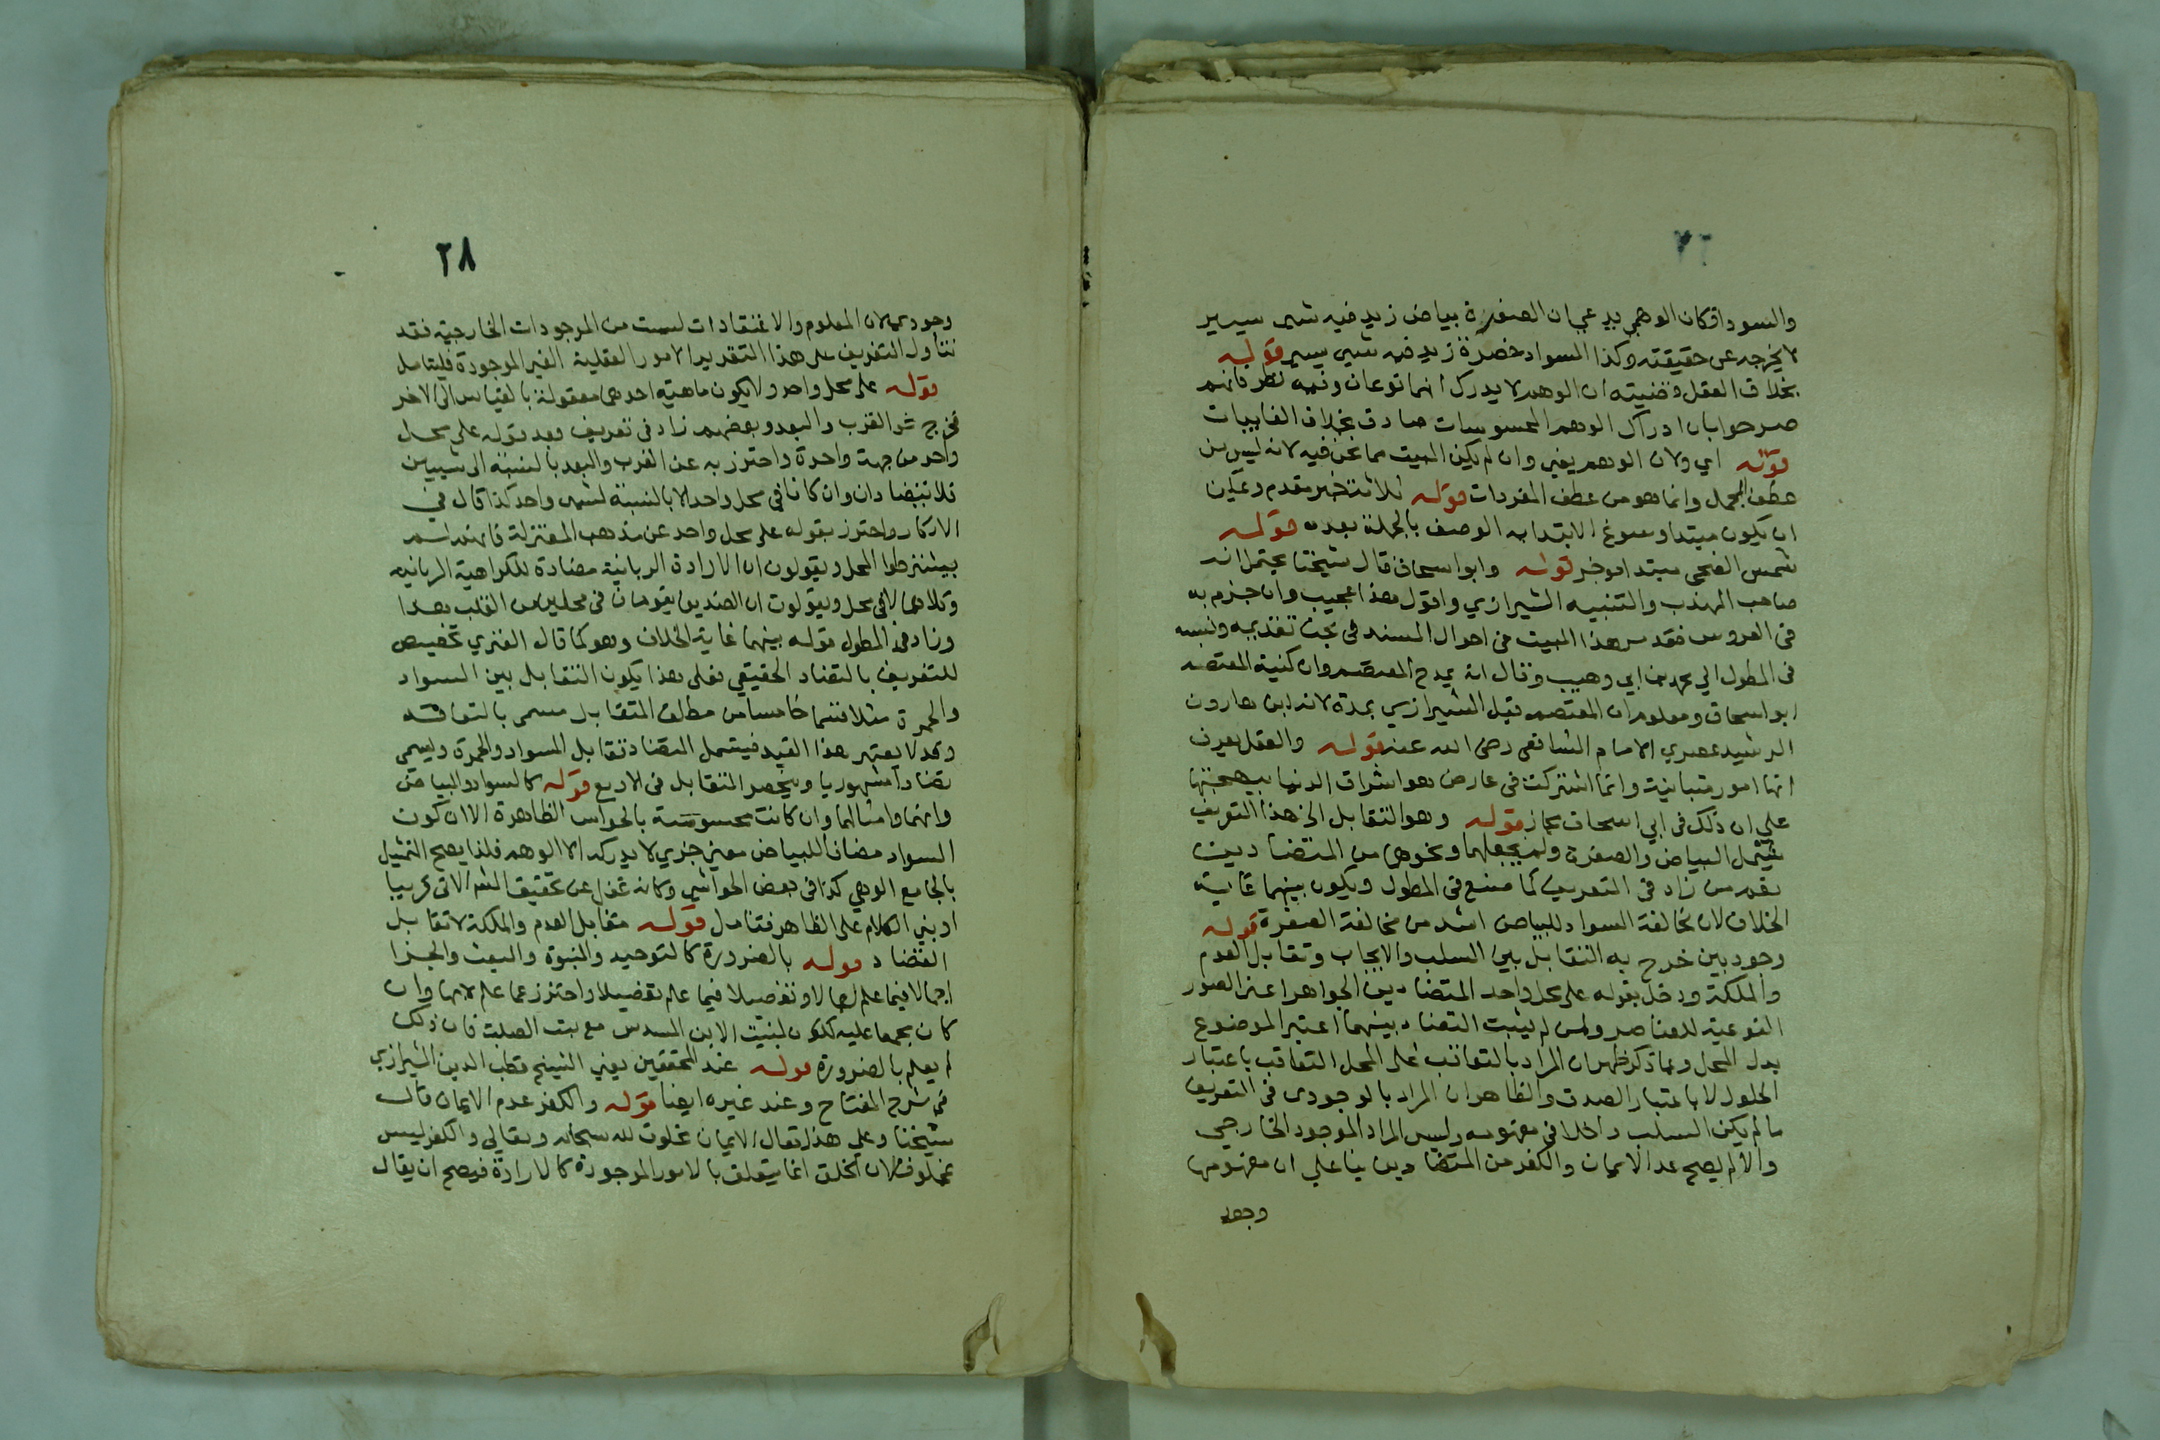 والسواد فكان الوهمي يدعي ان الصفرة بياض زيد فيه شيى يسير
لا يخرجه عن حقيقته وكذا السواد خضرة زيد فيه شيى يسير قوله
بخلاف العقل وقضيته ان الوهم لا يدرك انهما نوعان وفيه نظر فانهم
صرحوا بان ادراك الوهم المحسوسات صادق بخلاف الغايبات
قوله اي ولان الوهم يعني وان لم يكن البيت مما نحن فيه لانه ليس من
عطف الجمل وانما هو من عطف المفردات قوله ثلاثة خبر مقدم ويمكن
ان يكون مبتدا وسوغ الابتدا به الوصف بالجملة بعده قوله
شمس الضحى مبتدا موخر قوله وابو اسحاق قال شيخنا يحتمل انه
صاحب المهذب والتنبيه الشيرازي واقول هذا عجيب وان جزم به
في العروس فقد مر هذا البيت في احوال المسند في بحث تقديمه ونسبه
في المطول الي محمد بن ابي وهيب وقال انه يمدح المعتصم وان كنية المعتصم
ابو اسحاق ومعلوم ان المعتصم قبل الشيرازي بمدة لانه ابن هارون
الرشيد عصري الامام الشافعى رضى الله عنه قوله والعقل يعرف
انها امور متباينة وانما اشتركت في عارض هو اشراق الدنيا ببهجتها
علي ان ذلك في ابي اسحاق مجاز قوله وهو التقابل الخ هذا التعريف
يشمل البياض والصفرة ولم يجعلهما ونحوهما من المتضادين
نعم من زاد في التعريف كما صنع في المطول ويكون بينهما غاية
الخلاف لان مخالفة السواد للبياض اشد من مخالفة الصفرة قوله
وجوديين خرج به التقابل بين السلب والايجاب وتقابل العدم
والملكة ودخل بقوله على محل واحد المتضادين الجواهر اعني الصور
النوعية للعناصر ولمن لم يثبت التضاد بينهما اعتبر الموضوع
بدل المحل وبما ذكر ظهر ان المراد بالتعاقب على المحل التعاقب باعتبار
الحلول لا باعتبار الصدق والظاهر ان المراد بالوجودى في التعريف
ما لم يكن السلب داخلا في مفهومه وليس المراد الموجود الخارجي
والا لم يصح عد الايمان والكفر من المتضادين بنا علي ان مفهومها
وجود
٢٨
وجودي لان المعلوم والاعتقادات ليست من الموجودات الخارجية فقد
تناول التعريف على هذا التقدير الامور العقلية الغير الموجودة فليتامل
قوله على محل واحد ولا يكون ماهية احدهما معقولة بالقياس الى الاخر
فخرج نحو القرب والبعد وبعضهم زاد في تعريف بعد قوله على محل
واحد من جهة واحدة واحترز به عن القرب والبعد بالنسبة الى شييين
فلا يتضادان وان كانا في محل واحد الا بالنسبة لشيى واحد كذا قال في
الافكار واحترز بقوله على محل واحد عن مذهب المعتزلة فانهم لم
يشترطوا المحل ويقولون ان الارادة الربانية مضادة للكراهية الربانية
وكلاهما لا في محل ويقولون ان الضدين يقومان في محلين من القلب هذا
وزاد في المطول قوله بينهما غاية الخلاف وهو كما قال الفنري تخصيص
للتعريف بالتضاد الحقيقي فعلى هذا يكون التقابل بين السواد
والحمرة مثلا قسما خامسا من مطلق المتقابل مسمى بالتعاند
وقد لا يعتبر هذا القيد فيشمل التضاد تقابل السواد والحمرة ويسمى
تضادا مشهوريا وينحصر التقابل في الاربع قوله كالسواد والبياض
وانهما وامثالهما وان كانت محسوسة بالحواس الظاهرة الا ان كون
السواد مضادا للبياض معنى جزي لا يدركه الا الوهم فلذا يصح التمثيل
بالجامع الوهمي كذا في بعض الحواشي وكانه غفل عن تحقيق الشم الاتى قريبا
او بني الكلام على الظاهر فتامل قوله متقابل العدم والملكة لا تقابل
التضاد قوله بالضرورة كالتوحيد والنبوة والبعث والجزا
اجمالا فيما علم اجمالا وتفصيلا فيما علم تفصيلا واحترز عما علم لا بها وان
كان مجمعا عليه ككون لبنت الابن السدس مع بنت الصلب فان ذلك
لم يعلم بالضرورة قوله عند المحققين يعني الشيخ قطب الدين الشيرازي
في شرح المفتاح وعند غيره ايضا قوله والكفر عدم الايمان قال
شيخنا وعلي هذا يقال الايمان مخلوق لله سبحانه وتعالي والكفر ليس
بمخلوق لان الخلق انما يتعلق بالامور الموجودة كالارادة فيصح ان يقال